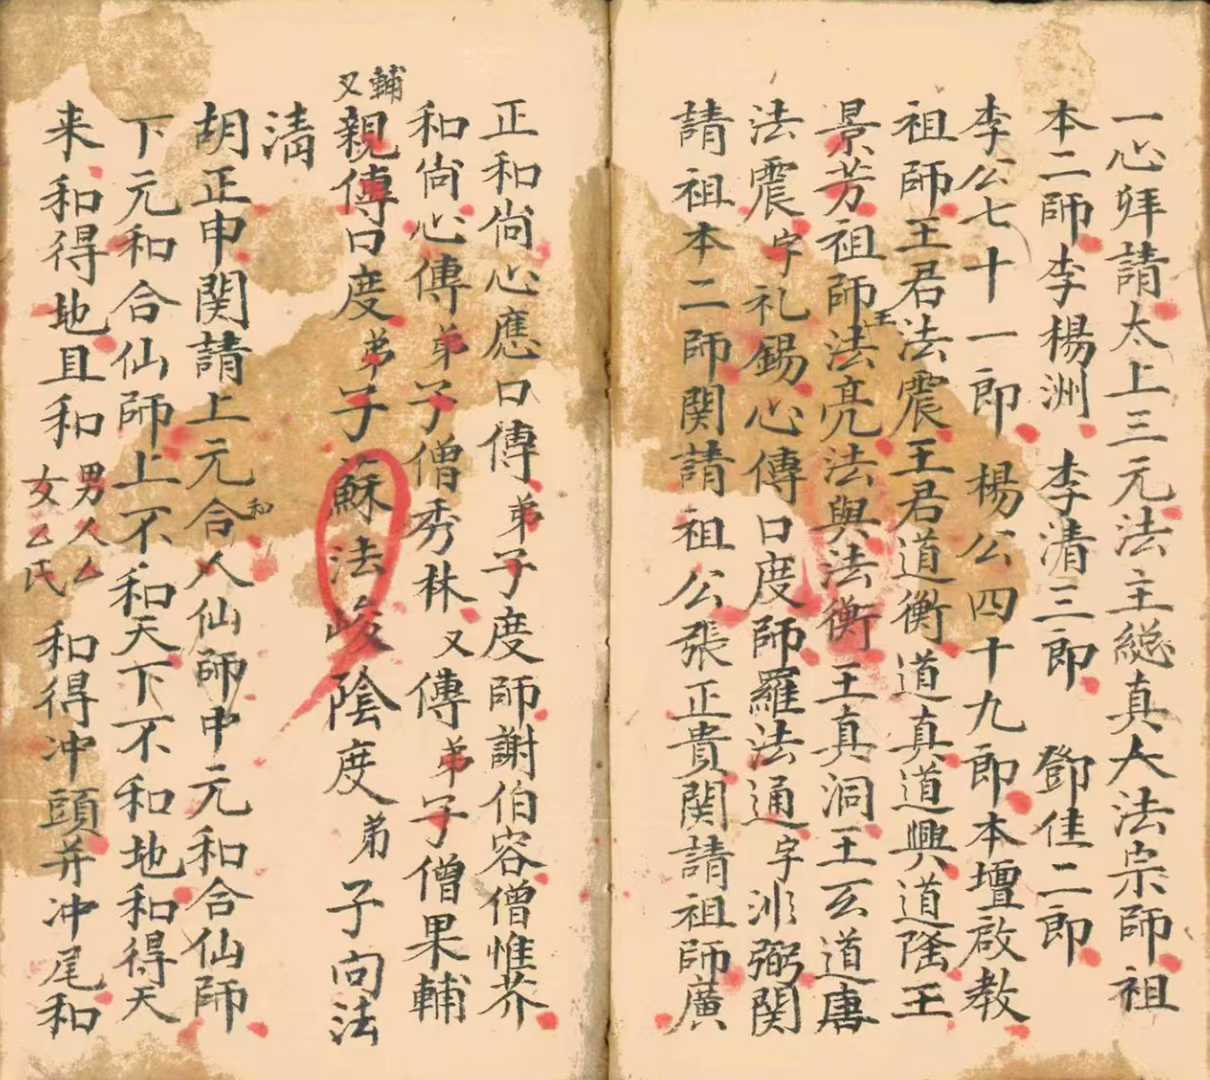 一心拜請太上三元法主總真大法宗師祖
本二師李楊洲 李清三郎 鄧佳二郎
李公七十一郎 楊公四十九郎本壇啟教
祖師王君法震王君道衡道真道興道隆王
景芳祖師王法亮法與法衡王真洞王玄道唐
法震字礼錫心傳口度師羅法通字弼関
請祖本二師関請祖公張正貴関請祖師廣
正和尚心應口傳弟子度師謝伯容僧惟芥
和尚心傳弟子僧秀林又傳弟子僧果輔
又輔親傳口度弟子蘇法峻陰度弟子向法
清
胡正申関請上元和合人仙師中元和合仙師
下元和合仙師上不和天下不和地和得天
来和得地且和男人厶女乙氏和得冲頭并冲尾和